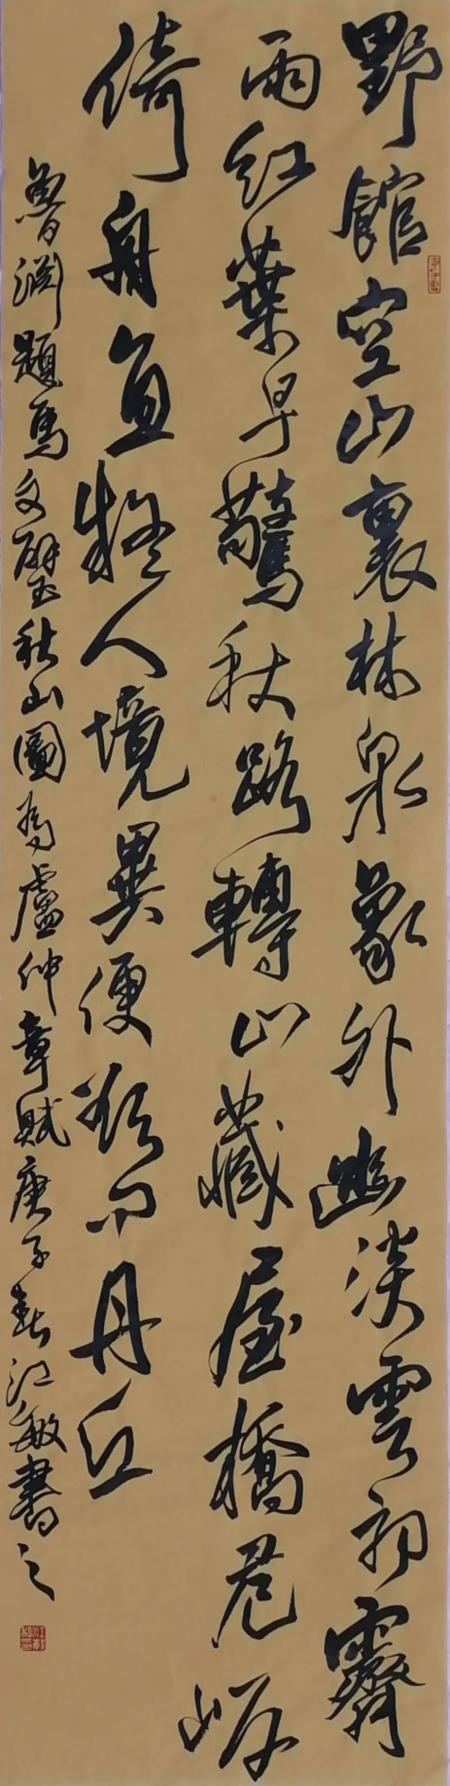 野館空山裏林泉象外幽淡雲初霽
雨紅葉早驚秋路轉山藏屋橋危岸
倚舟真疑人境異便欲問丹丘
魯淵題馬文璧秋山圖為盧仲章賦庚子春江敏書之